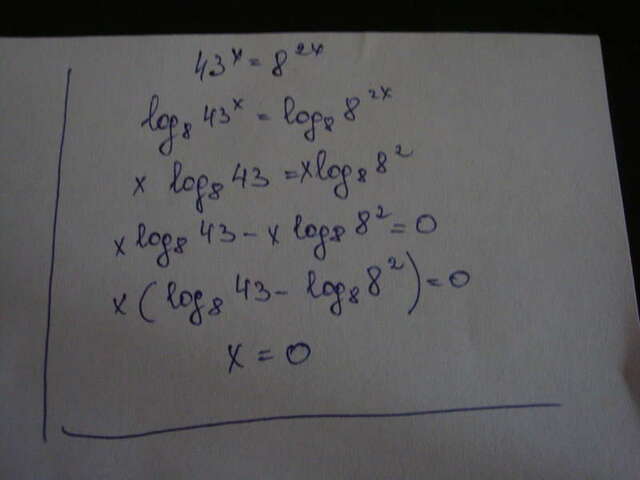 43^x = 8^{2x}
log_8 43^x = log_8 8^{2x}
x log_8 43 = x log_8 8^2
x log_8 43 - x log_8 8^2 = 0
x (log_8 43 - log_8 8^2) = 0
x = 0